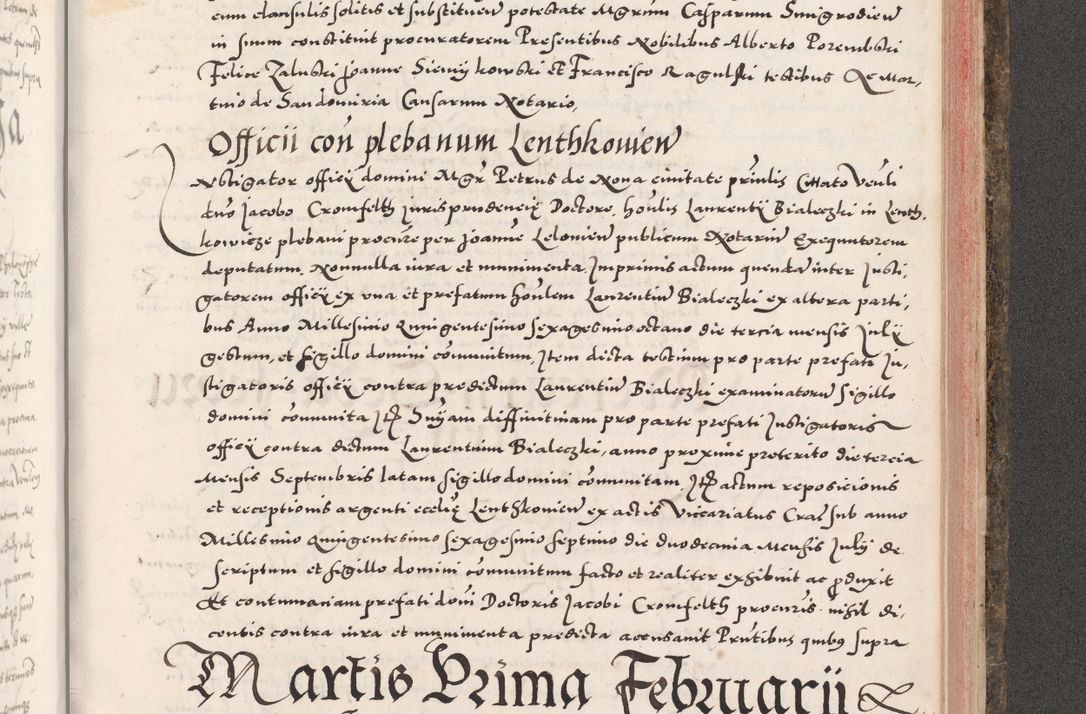 cum clausulis solitis et substituen̄ potestate Mgrum Casparum Smigrodien̄
in suum constituit procuratorem Presentibus Nobilibus Alberto Porembski
Felice Zaluski Joanne Sieny kowski et Francisco Ragulski testibus Et Mar,
tino de Sandomiria Causarum Notario,
Officii con̄ plebanum Lenthkovien̄
Nstigator officÿ domini Mgr Petrus de Nova civitate prin̄lis Cittato Ven̄li
dno Jacobo Cromfelth juris prudencię Doctore, hon̄lis Laurentÿ Bialeczki in Lenth,
kowicze plebani procu̅re per Joanne̅ Lelonien̄ publicum Notariu̅ Exequutorem
deputatum, Nonnulla iura et munimenta, Imprimis actum quenda̅ inter Insti,
gatorem officÿ ex una et prefatum hon̄lem Laurentiu̅ Bialeczki ex altera parti,
bus Anno Millesimo Quingentesimo sexagesimo octavo die tercia mensis Julÿ
gestum, et sigillo domini co̅munitum, Item dicta testium pro parte prefati In,
stigatoris officÿ contra predictum Laurentiu̅ Bialeczki examinatoru̅ sigillo
domini co̅munita Itē Sn̄iam diffinitivam pro parte prefati Instigatoris
officÿ contra dictum Laurentium Bialeczki, anno proxime preterito die tercia
Mensis Septembris latam sigillo domini co̅munitam, Itē actum reposicionis
et receptionis argenti ecclię Lenthkovien̄ ex actis Vicariatus Crac̄ sub anno
Millesimo Quingentesimo sexagesimo septimo die duodecima Mensis Julÿ de
scriptum et sigillo domini co̅munitum facto et realiter exhibuit ac ꝓduxit
Et contumaciam prefati dn̄i Doctoris Jacobi Cromfelth procu̅ris nihil di,
centis contra iura et munimenta predicta accusavit Prn̄tibus quibꝯ supra
Martis Prima Februarii